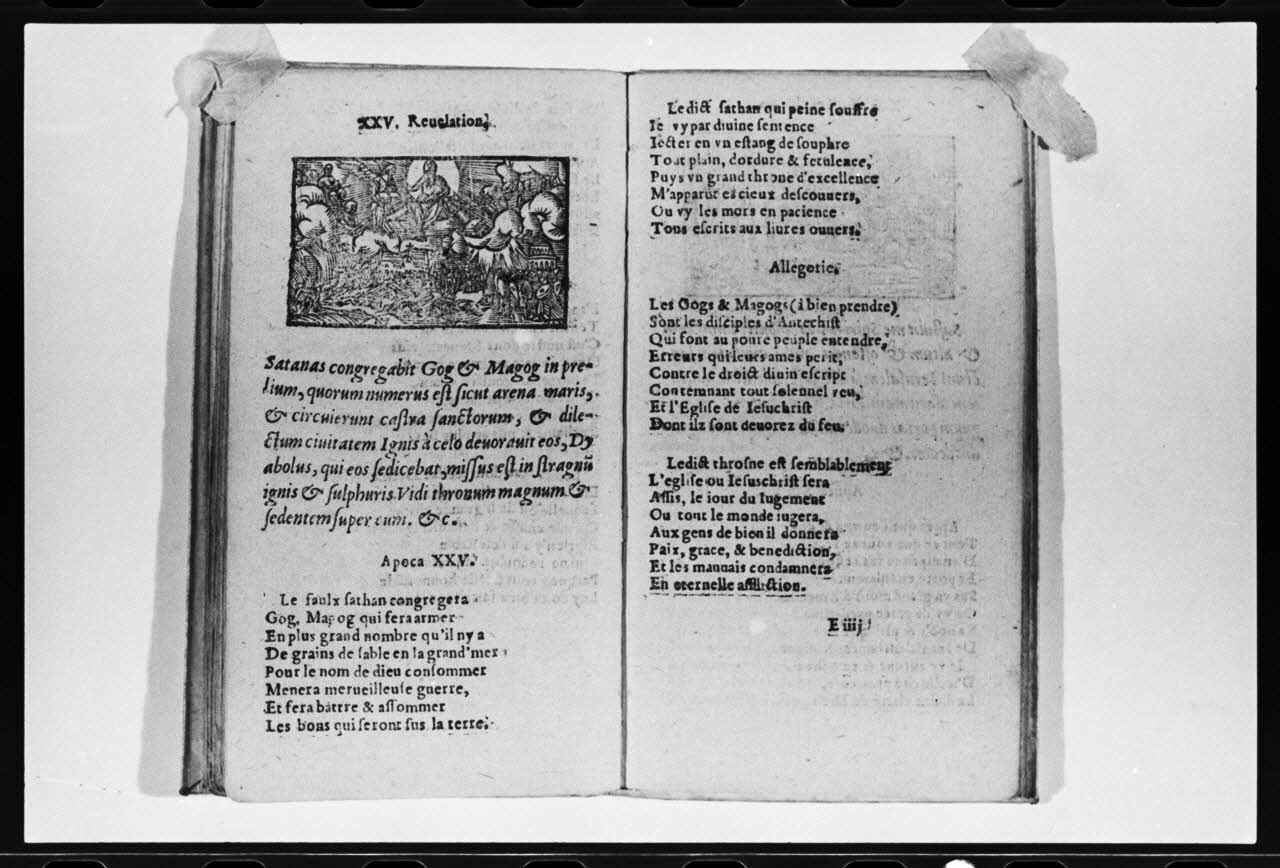 XXV. Reuelation.
Satanas congregabit Gog & Magog in pre-
lium, quorum numerus est sicut arena maris,
& circuierunt castra sanctorum, & dile-
ctum ciuitatem Ignis à celo deuorauit eos, Dy
abolus, qui eos sedicebat, missus est in stragnũ
ignis & sulphuris. Vidi thronum magnum &
sedentem super eum. &c.
Apoca XXV.
Le faulx sathan congregera
Gog, Magog qui fera armer
En plus grand nombre qu'il ny a
De grains de sable en la grand'mer
Pour le nom de dieu consommer
Menera merueilleuse guerre,
Et fera battre & assommer
Les bons qui seront sus la terre.
Ledict sathan qui peine souffre
Ie vy par diuine sentence
Iecter en vn estang de souphre
Tout plain, dordure & fetulence,
Puys vn grand throne d'excellence
M'apparut es cieux descouuers,
Ou vy les mors en pacience
Tous escrits aux liures ouuers.
Allegorie.
Les Gogs & Magogs (à bien prendre)
Sont les disciples d'Antechist
Qui font au poure peuple entendre,
Erreurs qui leurs ames perit,
Contre le droict diuin escript
Contemnant tout solennel veu,
Et l'Eglise de Iesuchrist
Dont ilz sont deuorez du feu.
Ledict throsne est semblablement
L'eglise ou Iesuschrist sera
Assis, le iour du Iugement
Ou tout le monde iugera,
Aux gens de bien il donnera
Paix, grace, & benediction,
Et les mauuais condamnera
En eternelle affliction.
E iiij